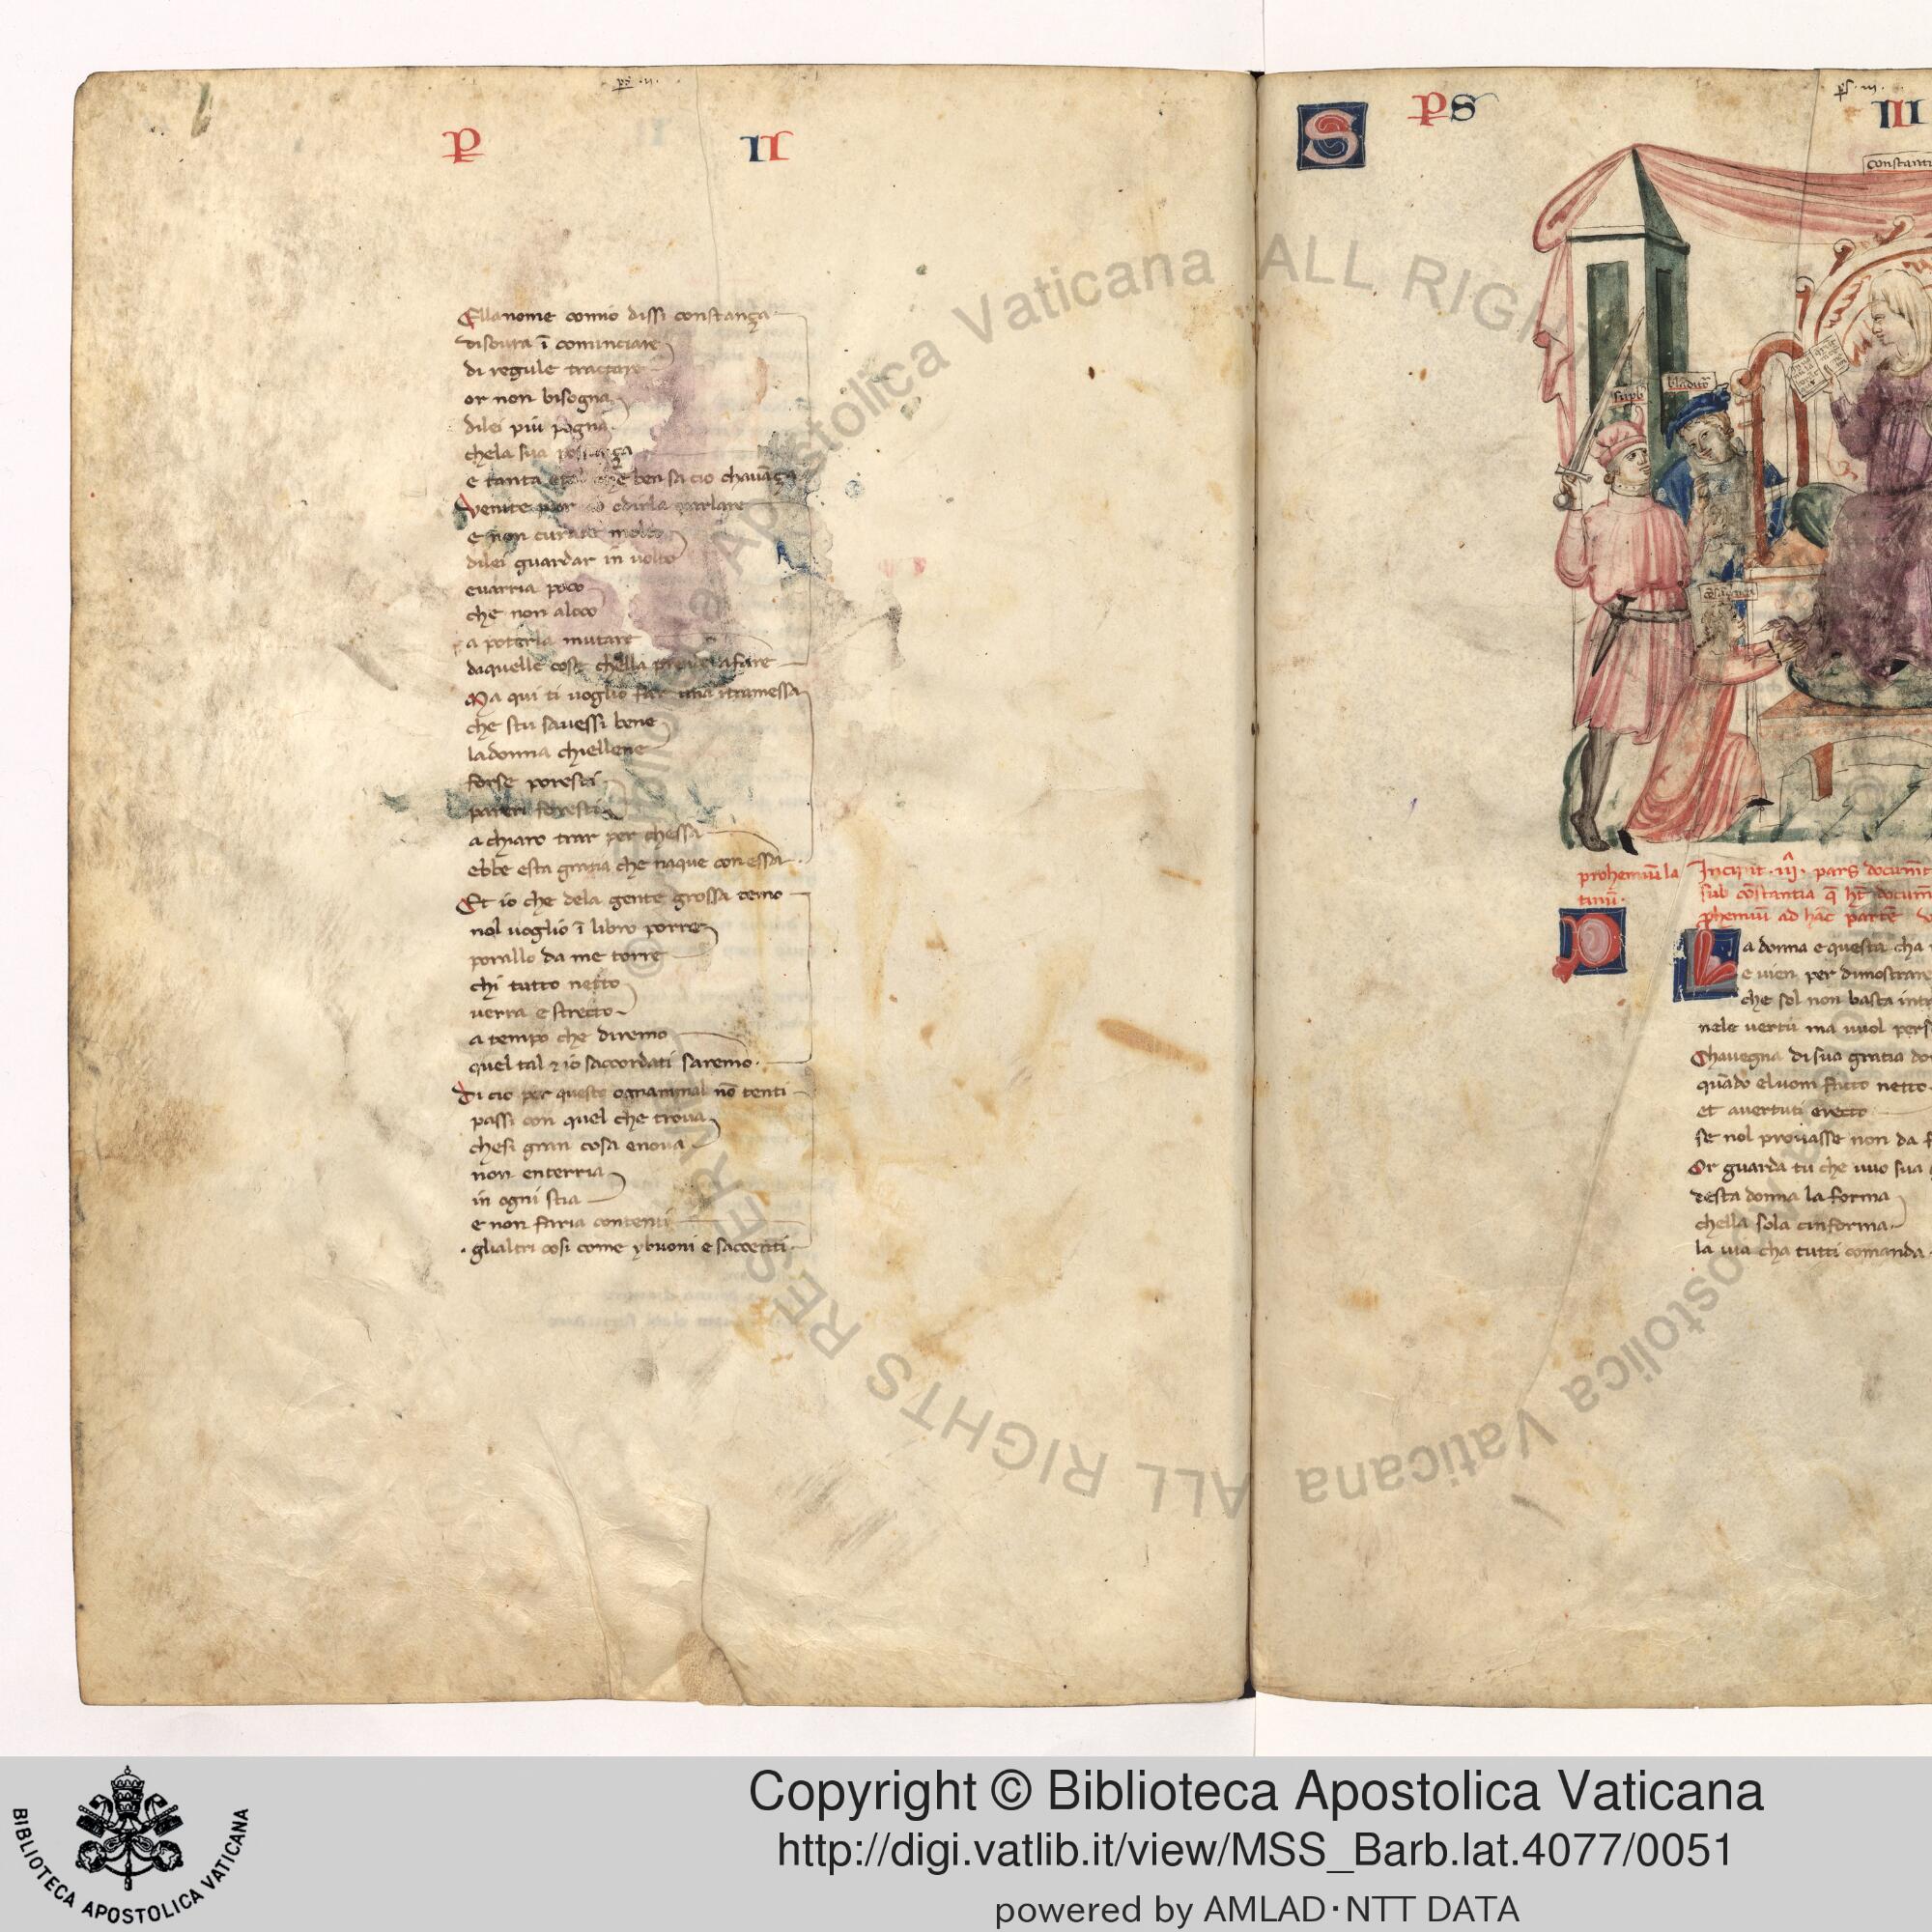 ps · ii ·
P II
Ellanome comio dissi constança
disoura ī cominciare
di regule tractare
or non bisogna
dilei piu pogna
chela sua possança
e tanta ben sa cio chauāça
Venite per odirla parlare
e non curate molto
dilei guardar in uolto
cuarria poco
che non aloco
a poterla mutare
daquelle cose chella prende afare
Ma qui ti uoglio far una tramessa
che stu sauessi bene
ladonna chiellene
forse poresti
pareri foresti
a chiaro trar per chessa
ebbe esta gratia che naque con essa
Et io che dela gente grossa temo
nol uoglio ī libro porre
porallo da me torre
chi tutto netto
uerra e strecto
a tempo che diremo
quel tal 7 io saccordati saremo
Di cio per questo ognanimal nō tenti
passi con quel che troua
chesi gran cosa enoua
non enterria
in ogni stia
e non faria contenti
glialtri cosi come y buoni e saccenti
S PS III
ps · iii ·
constanti
supb
prohemiū la
tinū
Incipit · iii · pars documēt
sub cōstantia q̄ ht̄ docum
phemiū ad hāc partē
La donna e questa cha
e uien per dimostrare
che sol non basta intr
nele uertu ma uuol pers
Chauegna di sua gratia do
quādo eluom fatto netto
et auertuti erecto
se nol prouasse non da f
Or guarda tu che uuo sua
desta donna la forma
chella sola cinforma
la uia cha tutti comanda
© Biblioteca Apostolica Vaticana ALL RIGHTS RESERVED
BIBLIOTECA APOSTOLICA VATICANA
Copyright © Biblioteca Apostolica Vaticana
http://digi.vatlib.it/view/MSS_Barb.lat.4077/0051
powered by AMLAD·NTT DATA